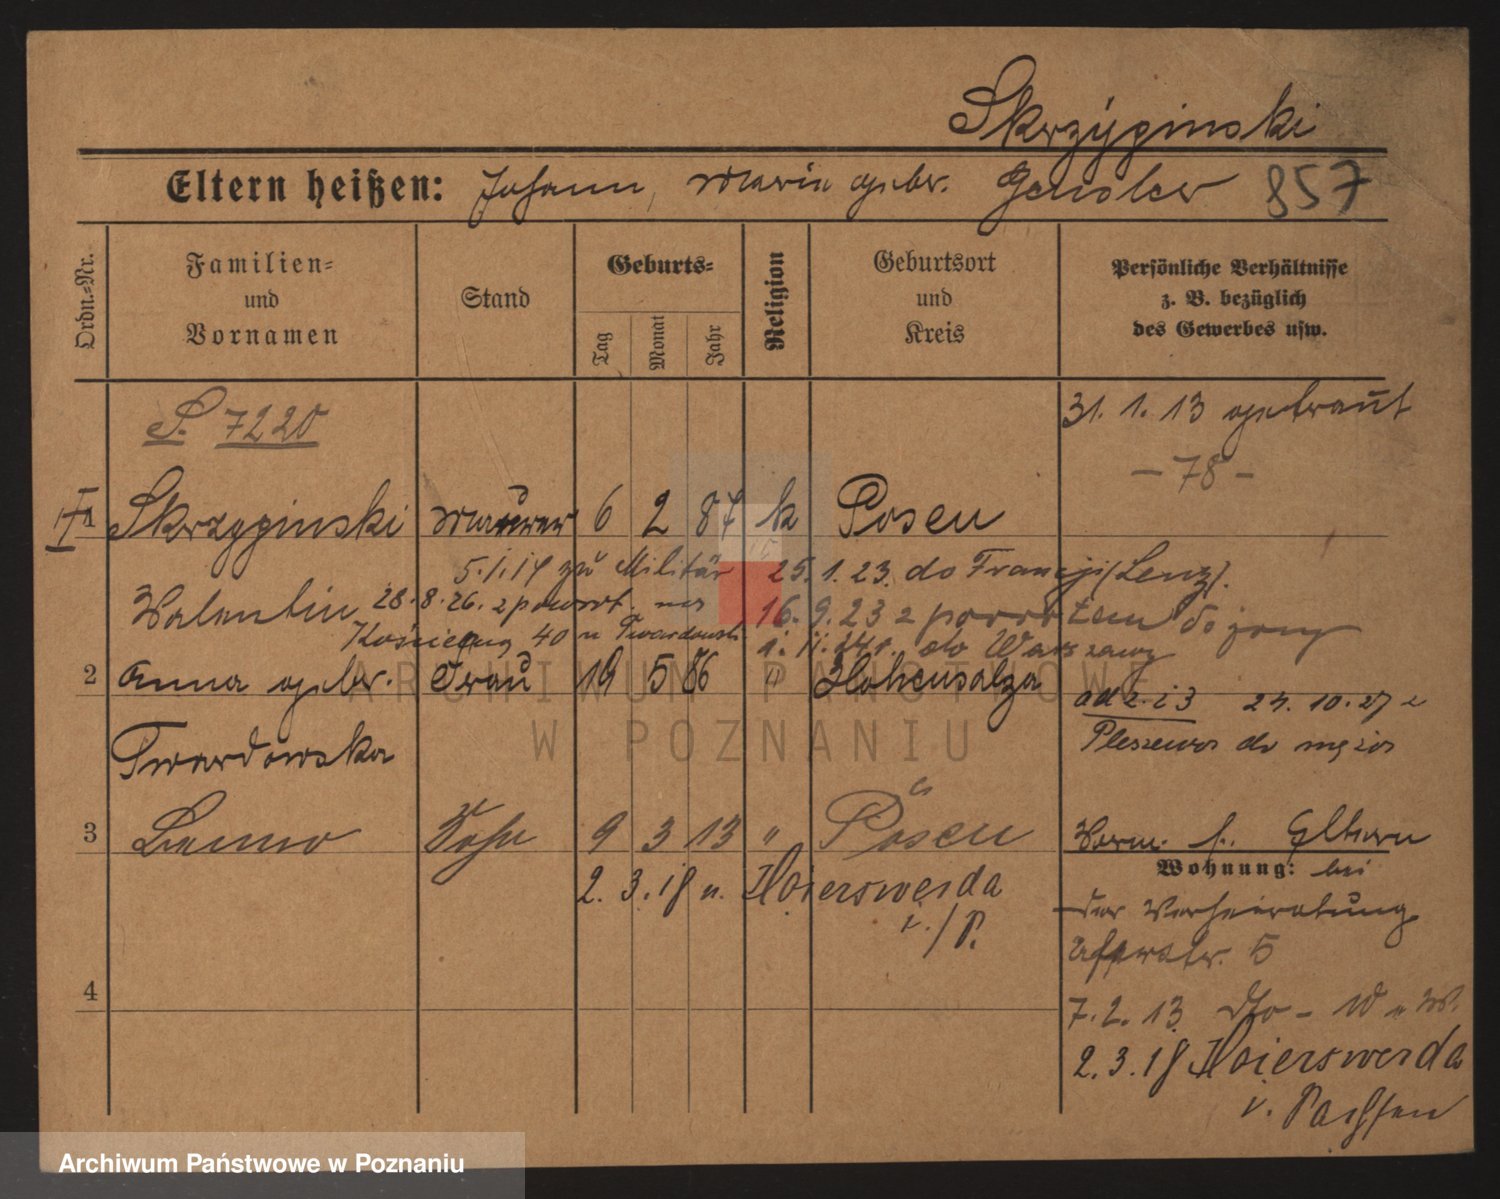 Skrzypinski
Eltern heißen: Johann, Maria gebr. Gensler 857
Ordn.=Nr.
Familien=
und
Vornamen
Stand
Geburts=
Tag
Monat
Jahr
Religion
Geburtsort
und
Kreis
Persönliche Verhältnisse
z. B. bezüglich
des Gewerbes usw.
S. 7220
31. 1. 13 getraut
- 78 -
1 Skrzypinski Maurer 6 2 87 k Posen
5.1.14 zu Militär 25.1.23. do Francji (Lenz).
Valentin 28.8.26. z powrot. na 16.9.23 z powrotem do żony
40 u Twardowski 1.11.24 r. do Warszawy
2 Anna gebr. Frau 19 5 86 " Hohensalza
ad 2 i 3 24.10.27 z
Twardowska
Pleszewa do męża
3 Benno Sohn 9 3 13 " Posen
Vorm. b. Eltern
Wohnung: bei
2.3.18 n. Hoierswerda
der Verheiratung
5
4
7.2.13
2.3.18 Hoierswerda
ARCHIWUM PAŃSTWOWE
W POZNANIU
Archiwum Państwowe w Poznaniu